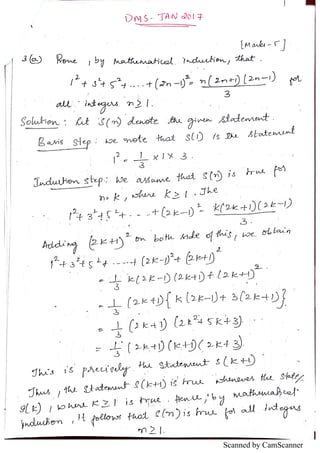 DMS - JAN 2017
[Marks - 5]
3(a) Prove, by mathematical Induction, that.
1² + 3² + 5² + .... + (2n-1)² = n(2n+1)(2n-1) / 3 for
all integers n ≥ 1.
Solution: Let S(n) denote the given statement.
Basis step: We note that S(1) is the statement
1² = 1/3 × 1 × 3.
Induction step: We assume that S(n) is true for
n = k, where k ≥ 1. The
1² + 3² + 5² + - - - + (2k-1)² = k(2k+1)(2k-1) / 3.
Adding (2k+1)² on both side of this, we obtain
1² + 3² + 5² + ----- + (2k-1)² + (2k+1)²
= 1/3 k(2k-1)(2k+1) + (2k+1)².
= 1/3 (2k+1) { k(2k-1) + 3(2k+1) }
= 1/3 (2k+1) (2k² + 5k + 3)
= 1/3 (2k+1)(k+1)(2k+3).
This is precisely the statement S(k+1)
Thus, the statement S(k+1) is true whenever the state
S(k), where k ≥ 1 is true. Hence, by mathematical
induction, it follows that S(n) is true for all integers
n ≥ 1.
Scanned by CamScanner